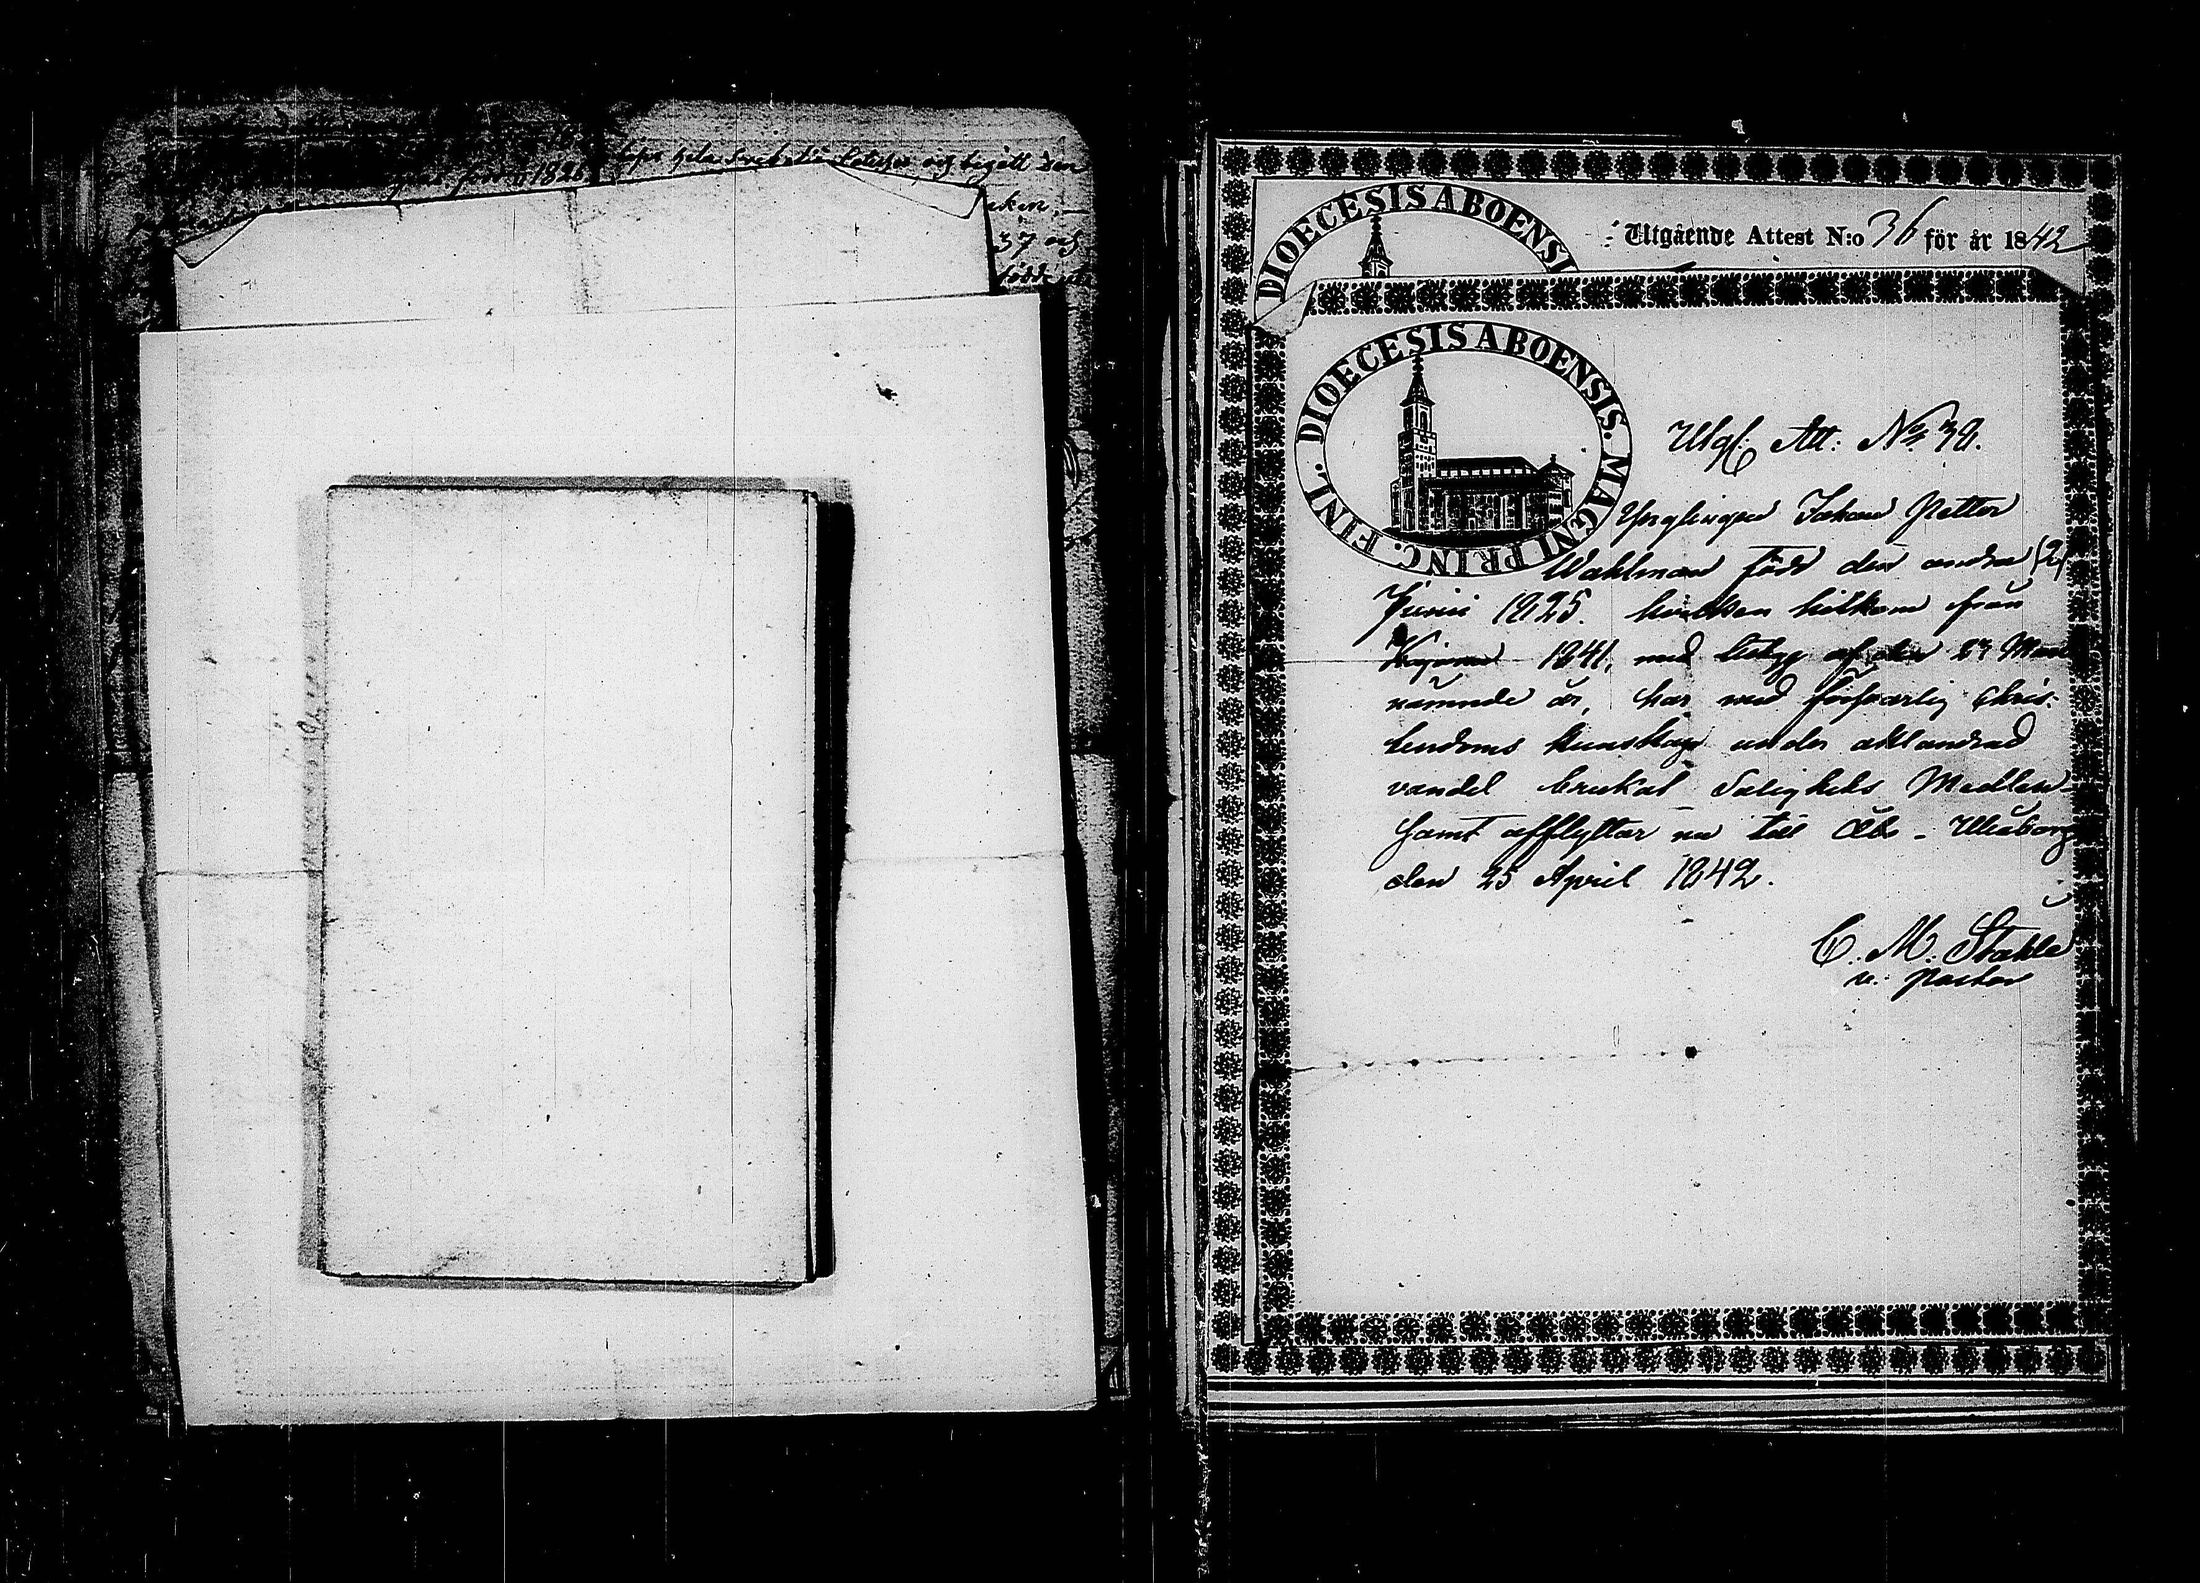 1826
eken,
37 och
födde
DIOECESIS ABOENSI
Utgående Attest N:o 36 för år 1842
DIOECESIS ABOENSIS. MAGNI PRINC. FINL.
Utg: Att: No 39.
Ynglingen Johan Petter
Wahlman född den andra (2)
Junii 1825. hvilken hitkom från
Kajana 1841, med betyg af den 27 Mars
nämnde år, har med försvarlig Chris-
tendoms kunskap under oklandrad
vandel brukat Salighets Medlen
samt afflyttar nu till Åbo - Uleåborg
den 25 April 1842.
C. M. Stahle
v. pastor